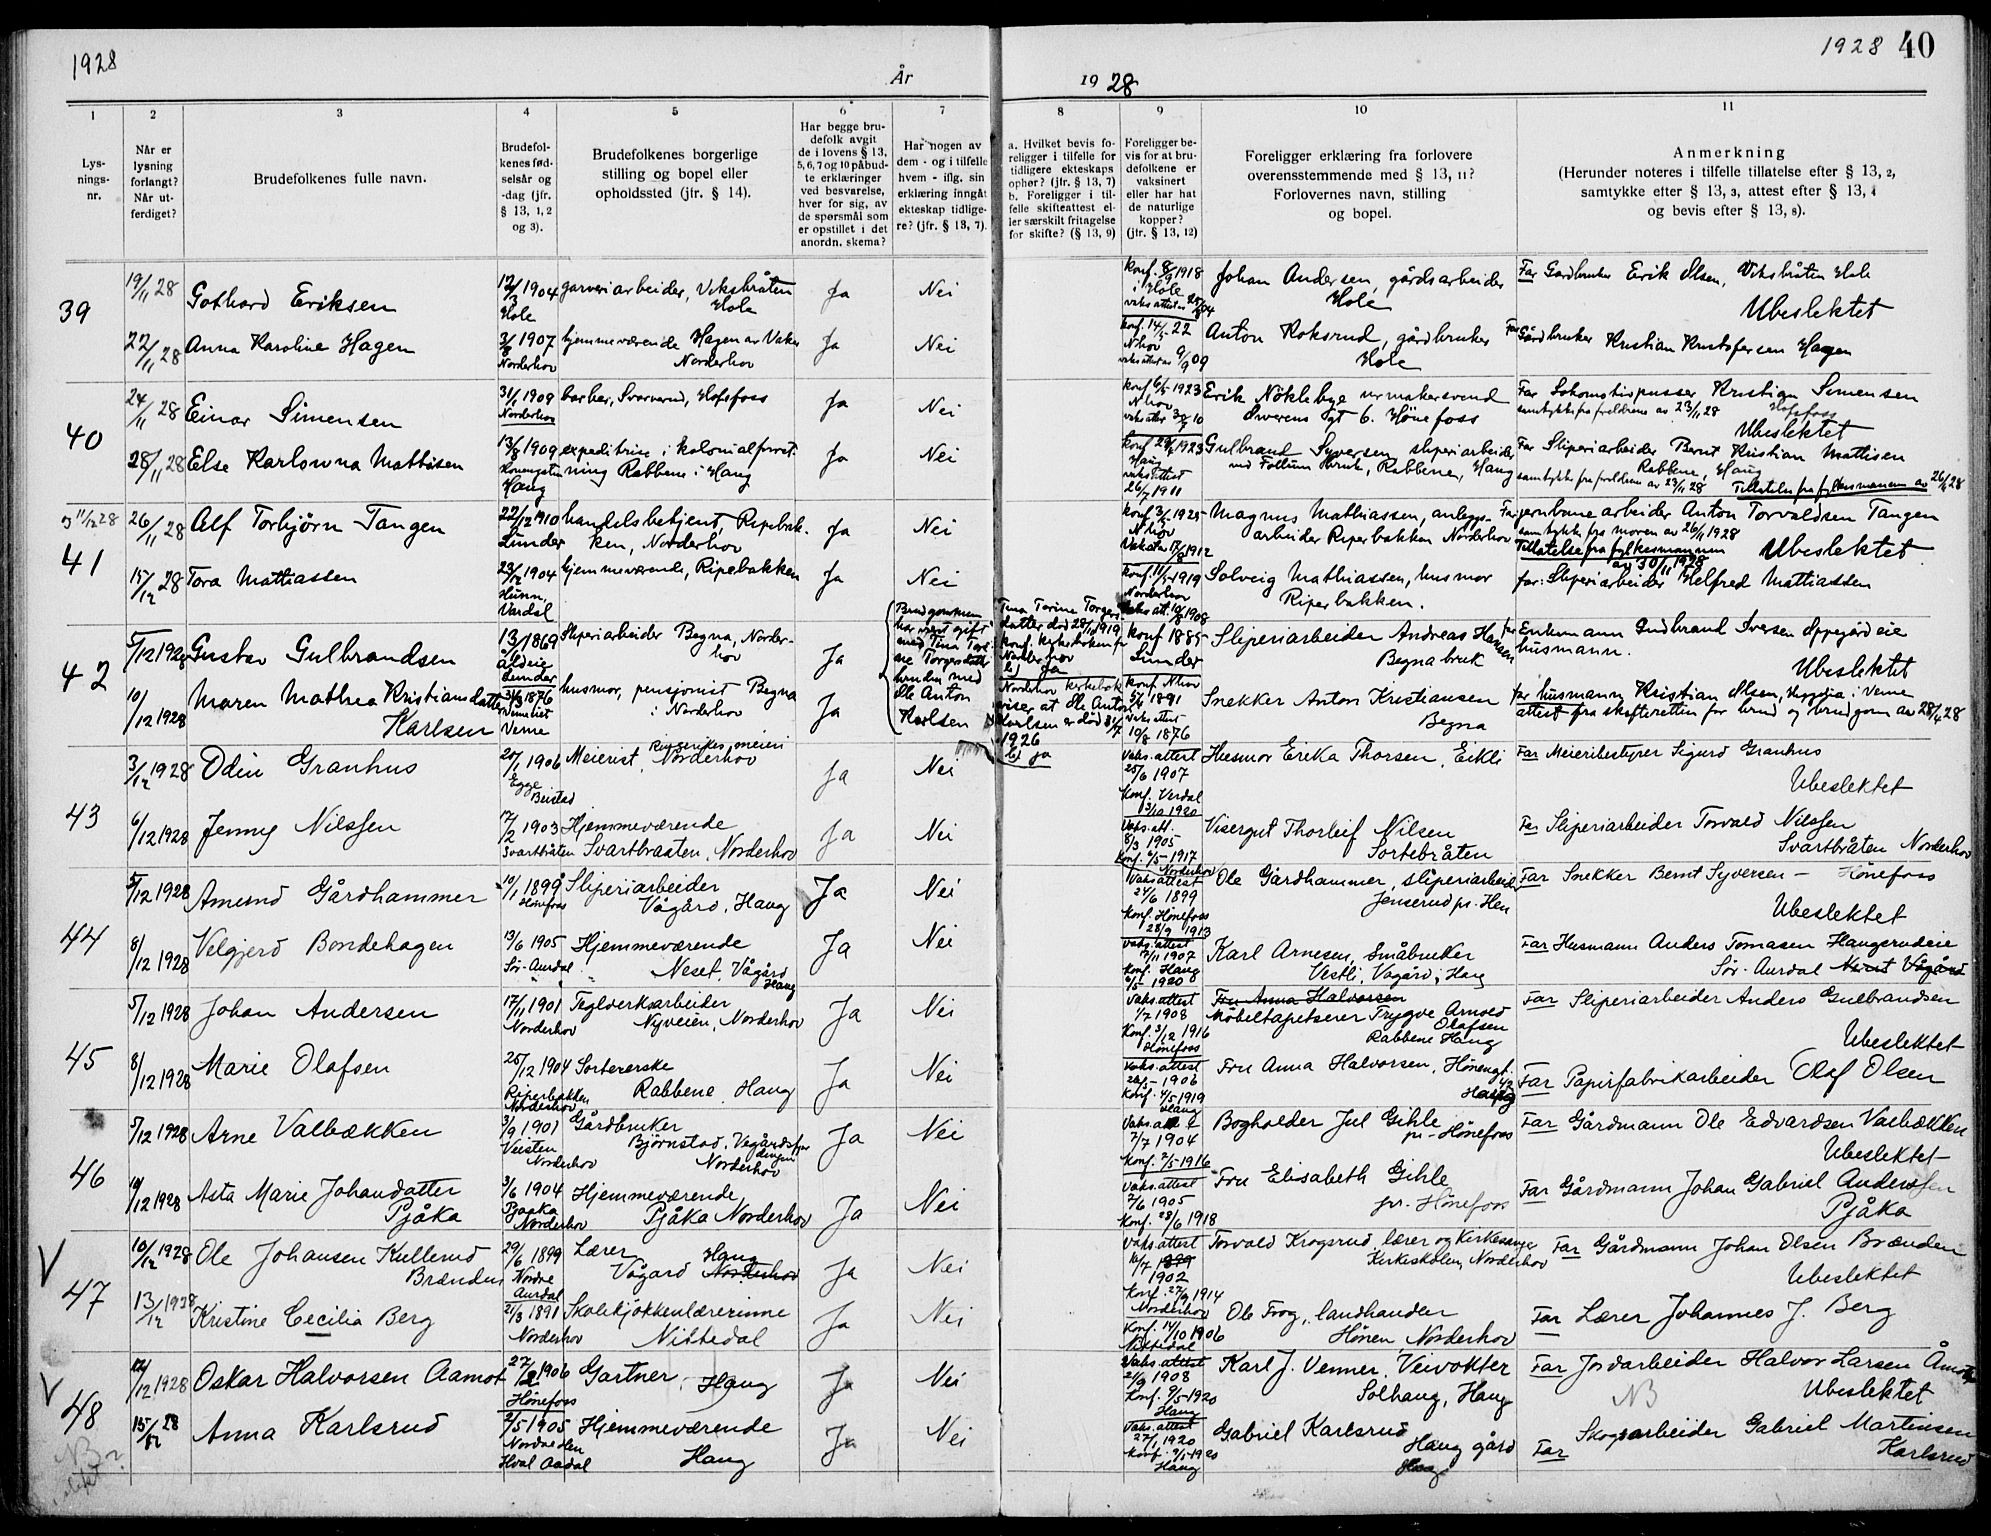 1928
År
19 28
1928 40
1
2
3
4
5
6
7
8
9
10
11
Lys-
nings-
nr.
Når er
lysning
forlangt?
Når ut-
ferdiget?
Brudefolkenes fulle navn.
Brudefol-
kenes fød-
selsår og
-dag (jfr.
§ 13, 1, 2
og 3).
Brudefolkenes borgerlige
stilling og bopel eller
opholdssted (jfr. § 14).
Har begge bru-
defolk avgit
de i lovens § 13,
5, 6, 7 og 10 påbud-
te erklæringer
ved besvarelse,
hver for sig, av
de spørsmål som
er opstillet i det
anordn. skema?
Har nogen av
dem - og i tilfelle
hvem - iflg. sin
erklæring inngåt
ekteskap tidlige-
re? (jfr. § 13, 7).
a. Hvilket bevis fo-
religger i tilfelle for
tidligere ekteskaps
ophør? (jfr. § 13, 7)
b. Foreligger i til-
felle skifteattest el-
ler særskilt fritagelse
for skifte? (§ 13, 9)
Foreligger be-
vis for at bru-
defolkene er
vaksinert
eller har hat
de naturlige
kopper?
(jfr. § 13, 12)
Foreligger erklæring fra forlovere
overensstemmende med § 13, 11?
Forlovernes navn, stilling
og bopel.
Anmerkning
(Herunder noteres i tilfelle tillatelse efter § 13, 2,
samtykke efter § 13, 3, attest efter § 13, 4
og bevis efter § 13, 8).
39
19/11 28
Gothard Eriksen
12/3 1904
Hole
garveriarbeider, Viksbråten
Hole
Ja
Nei
Konf. 8/9 1918
i Hole
Johan Andersen, gårdsarbeider
Hole
Far Gardbruker Erik Olsen, Viksbråten Hole
Ubeslektet
22/11 28
Anna Karoline Hagen
3/8 1907
Norderhov
hjemmeværende Hagen av Vaker
Norderhov
Ja
Nei
Konf. 14/5 22
N.hov
Anton Roksrud, gårdbruker
Hole
Far Gårdbruker Kristian Kristofersen Hagen
40
24/11 28
Einar Simensen
31/1 1909
Norderhov
barber, Svarverud, Hofsfoss
Ja
Nei
Konf 6/5 1923
N.hov
Erik Nøkleby urmakersvend
Owerens Sgt 6. Hønefoss
Far Lokomotivpusser Kristian Simensen
samtykke fra foreldrene av 23/11 28 Hofsfoss
Ubeslektet
28/11 28
Else Karlowna Mattisen
13/8 1909
Haug
expeditrise i kolonialforret-
ning Rabbene i Haug
Ja
Nei
Konf 29/4 1923
Haug
vaks. attest
26/7 1911
Gulbrand Syversen sliperiarbeider
ved Follum Bruk, Rabbene, Haug
Far Sliperiarbeider Bernt Kristian Mattisen
Rabbene, Haug
samtykke fra foreldrene av 23/11 28
Tillatelse fra fylkesmannen av 26/11 28
41
26/11 28
Alf Torbjørn Tangen
22/12 1910
Lunder
handelsbetjent, Ripebak-
ken, Norderhov
Ja
Nei
Konf. 3/5 1925
N.hov
Magnus Mathiassen, anleggs-
arbeider Riperbakken Norderhov
Far jernbanearbeider Anton Torvaldsen Tangen
samtykke fra moren av 26/11 1928
Tillatelse fra fylkesmannen
av 30/11 1928
Ubeslektet
15/12 28
Tora Mattiassen
23/12 1904
Hunn,
Vardal
hjemmeværende, Ripebakken
Ja
Nei
Konf. 11/5 1919
Norderhov
Vaks att. 10/8 1908
Solveig Mathiassen, husmor
Riperbakken.
far: Sliperiarbeider Helfred Mattiassen
42
5/12 1928
Gustav Gulbrandsen
Lunder
Sliperiarbeider Begna, Norder-
hov
Ja
Brudgommen
har vært gift
med Tina Tori-
ne Torgersdatter
bruden med
Ole Anton
Karlsen
Tina Torine Torgers
datter død 28/11 1919
konf. kirkeboken for
Norderhov
b) Ja
Konf 1885
Lunder
Sliperiarbeider Andreas Hansen
Begna bruk
far Enkemann Gudbrand Iversen Oppegårdeie
husmann.
Ubeslektet
10/12 1928
Maren Mathea Kristiansdatter
Karlsen
31/3 1876
Veme
husmor, pensjonist Begna
i Norderhov
Ja
Norderhov kirkebok
viser at Ole Anton
Karlsen er død 31/7
1926
b) ja
Konf. N.hov
5/4 1891
Vaks atter
19/8 1876
Snekker Anton Kristiansen
Begna
far husmann Kristian Olsen, Hygdia i Veme
attest fra skifteretten for brud og brudgom av 28/4 28
43
3/12 1928
Odin Granhus
20/1 1906
Egge
Beistad
Meierist, Ringerikes meieri
Norderhov
Ja
Nei
Vaks. attest
25/6 1907
Konf. Verdal
3/10 1920
Husmor Erika Thorsen, Eikli
Far Meieribestyrer Sigurd Granhus
Ubeslektet
6/12 1928
Jenny Nilssen
17/2 1903
Svartbråten
Hjemmeværende
Svartbraaten, Norderhov
Ja
Nei
Vaks. att.
8/3 1905
Konf. 6/5 1917
Norderhov
Visergut Thorleif Nilsen
Sortebråten
Far Sliperiarbeider Torvald Nilssen
Svartbråten Norderhov
44
5/12 1928
Amund Gårdhammer
10/1 1899
Hønefoss
Sliperiarbeider
Vågård, Haug
Ja
Nei
Vaks attest
24/6 1899
Konf. Hønefoss
28/9 1913
Ole Gårdhammer, sliperiarbeider
Jenserud pr. Hen
Far Snekker Bernt Syversen - Hønefoss
Ubeslektet
8/12 1928
Velgjerd Bondehagen
13/6 1905
Sør-Aurdal
Hjemmeværende
Neset, Vågård
Haug
Ja
Nei
Vaks. attest
17/11 1907
Konf. Haug
9/5 1920
Karl Arnesen, Småbruker
Vestli, Vågård, Haug
Far Husmann Anders Tomasen Haugsrudeie
Sør-Aurdal Neset Vågård
45
5/12 1928
Johan Andersen
17/11 1901
Norderhov
Teglverksarbeider
Nyveien, Norderhov
Ja
Nei
Vaks. attest
1/7 1908
Konf. 3/12 1916
Hønefoss
Fru Anna Halvorsen
Møbeltapetserer Trygve Arnold
Olafsen
Rabbene Haug
Far Sliperiarbeider Anders Gulbrandsen
Ubeslektet
8/12 1928
Marie Olafsen
25/12 1904
Riperbakken
Norderhov
Sortererske
Rabbene, Haug
Ja
Nei
Vaks. attest
26/5 1906
Konf. 4/5 1919
Haug
Fru Anna Halvorsen, Hønengt.
42
Haug
Far Papirfabrikarbeider Olaf Olsen
46
5/12 1928
Arne Valbækken
3/9 1901
Veisten
Norderhov
Gårdbruker
Bjørnstad, Vegårdsfjer
dingen
Norderhov
Ja
Nei
7/7 1904
Konf. 2/5 1916
Bogholder Jul Gihle
pr - Hønefoss
Far Gårdmann Ole Edvardsen Valbækken
Ubeslektet
10/12 1928
Asta Marie Johansdatter
Pjåka
3/6 1904
Pjaaka
Norderhov
Hjemmeværende
Pjåka Norderhov
Ja
Nei
Vaks. attest
7/6 1905
Konf. 28/6 1918
Fru Elisabeth Gihle
pr. Hønefoss
Far Gårdmann Johan Gabriel Anderssen
Pjåka
V
47
10/12 1928
Ole Johansen Kullerud
Brænden
29/6 1899
Nordre
Aurdal
Lærer
Haug
Vågård Norderhov
Ja
Nei
Vaks attest
10/7 1899
1902
Konf. 27/9 1914
Norderhov
Torvald Krogsrud, lærer og Kirkesanger
Kirkeskolen, Norderhov
Far Gårdmann Johan Olsen Brænden
Ubeslektet
13/12 1928
Kristine Cecilia Berg
21/3 1891
Norderhov
Skolekjøkkenlærerinne
Nittedal
Ja
Nei
Konf. 14/10 1906
Nittedal
Ole Frog, landhandler
Hønen Norderhov
Far Lærer Johannes J. Berg
V
48
12/12 1928
Oskar Halvorsen Aamot
27/2 1906
Hønefoss
Gartner, Haug
Ja
Nei
Vaks. attest
21/9 1908
Konf. 9/5 1920
Haug
Karl J. Venner, Veivokter
Solhaug, Haug
Far Jordarbeider Halvor Larsen Åmot
NB
Ubeslektet
15/12 28
Anna Karlsrud
2/5 1905
Hval Aadal
Hjemmeværende
Haug
Ja
Nei
Vaks. attest
27/1 1920
Konf. 9/5 1920
Haug
Gabriel Karlsrud
Haug gård
Haug
Far Skogsarbeider Gabriel Martinsen
Karlsrud
NB